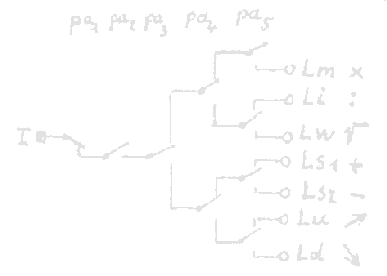 pa1 pa2 pa3 pa4 pa5
Lm x
Li :
I
Lw √
Ls1 +
Ls2 -
Lu ↗
Ld ↘